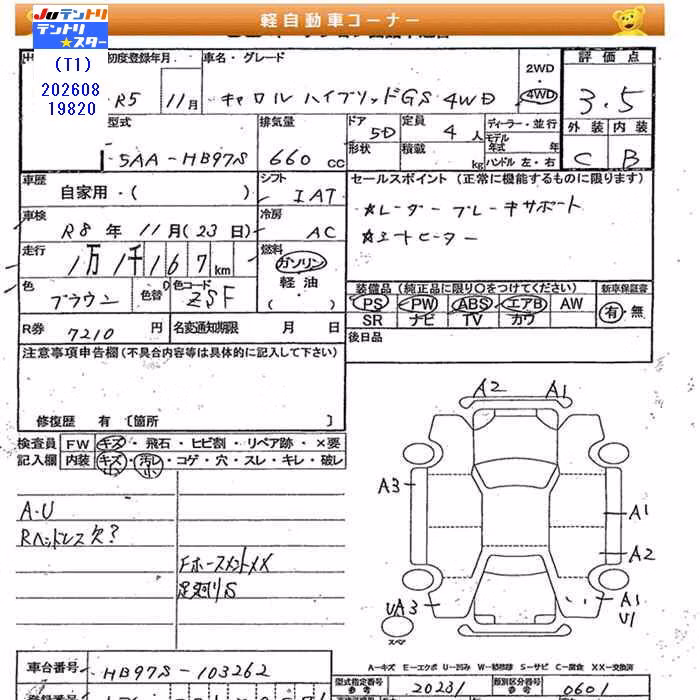 JUテントリ
テントリ★スター
(T1)
202608
19820
軽自動車コーナー
初度登録年月
R5 11月
車名・グレード
キャロル ハイブリッドGS 4WD
2WD・4WD
評価点
3.5
型式
5AA-HB97S
排気量
660 cc
ドア 5D
形状
定員 4人
積載 kg
ディーラー・並行
モデル年式 年
ハンドル 左・右
外装 内装
C B
車歴
自家用・( )
シフト
IAT
セールスポイント (正常に機能するものに限ります)
☆レーダーブレーキサポート
☆シートヒーター
車検
R8年 11月(23日)
冷房
AC
走行
1万1千167km
燃料
ガソリン
軽油
( )
色
ブラウン
色替
色コード
ZSF
装備品 (純正品に限り○をつけてください)
PS PW ABS エアB AW
SR ナビ TV カワ
新車保証書
有・無
R券 7210円
名変通知期限 月 日
後日品
注意事項申告欄 (不具合内容等は具体的に記入して下さい)
修復歴 有 〔箇所 〕
検査員記入欄
FW キズ・飛石・ヒビ割・リペア跡・×要
内装 キズ小・汚レ小・コゲ・穴・スレ・キレ・破レ
A・U
Rヘッドレス欠?
Fホースメントメメ
足廻りS
A2 A1
A3
A1
A2
UA3
A1
U1
スペア
A-キズ E-エクボ U-凹み W-補修跡 S-サビ C-腐食 XX-交換済
車台番号
HB97S-103262
型式指定番号
参考
20231
類別区分番号
参考
0601